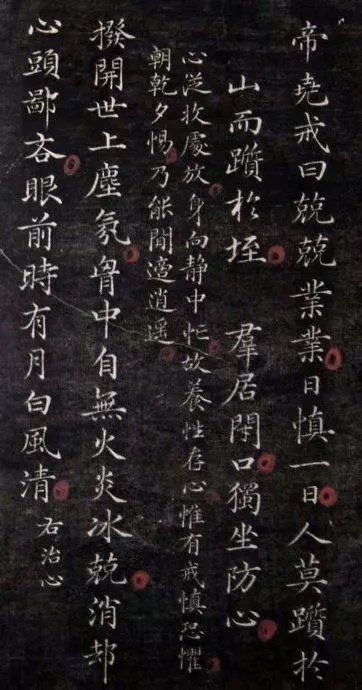 帝堯戒曰兢兢業業日慎一日人莫躓於
山而躓於垤　羣居閉口獨坐防心
心從收處放身向静中忙故養性存心惟有戒慎恐懼
朝乾夕惕乃能閒適逍遥
撥開世上塵氛胷中自無火炎冰兢消却
心頭鄙吝眼前時有月白風清　右治心